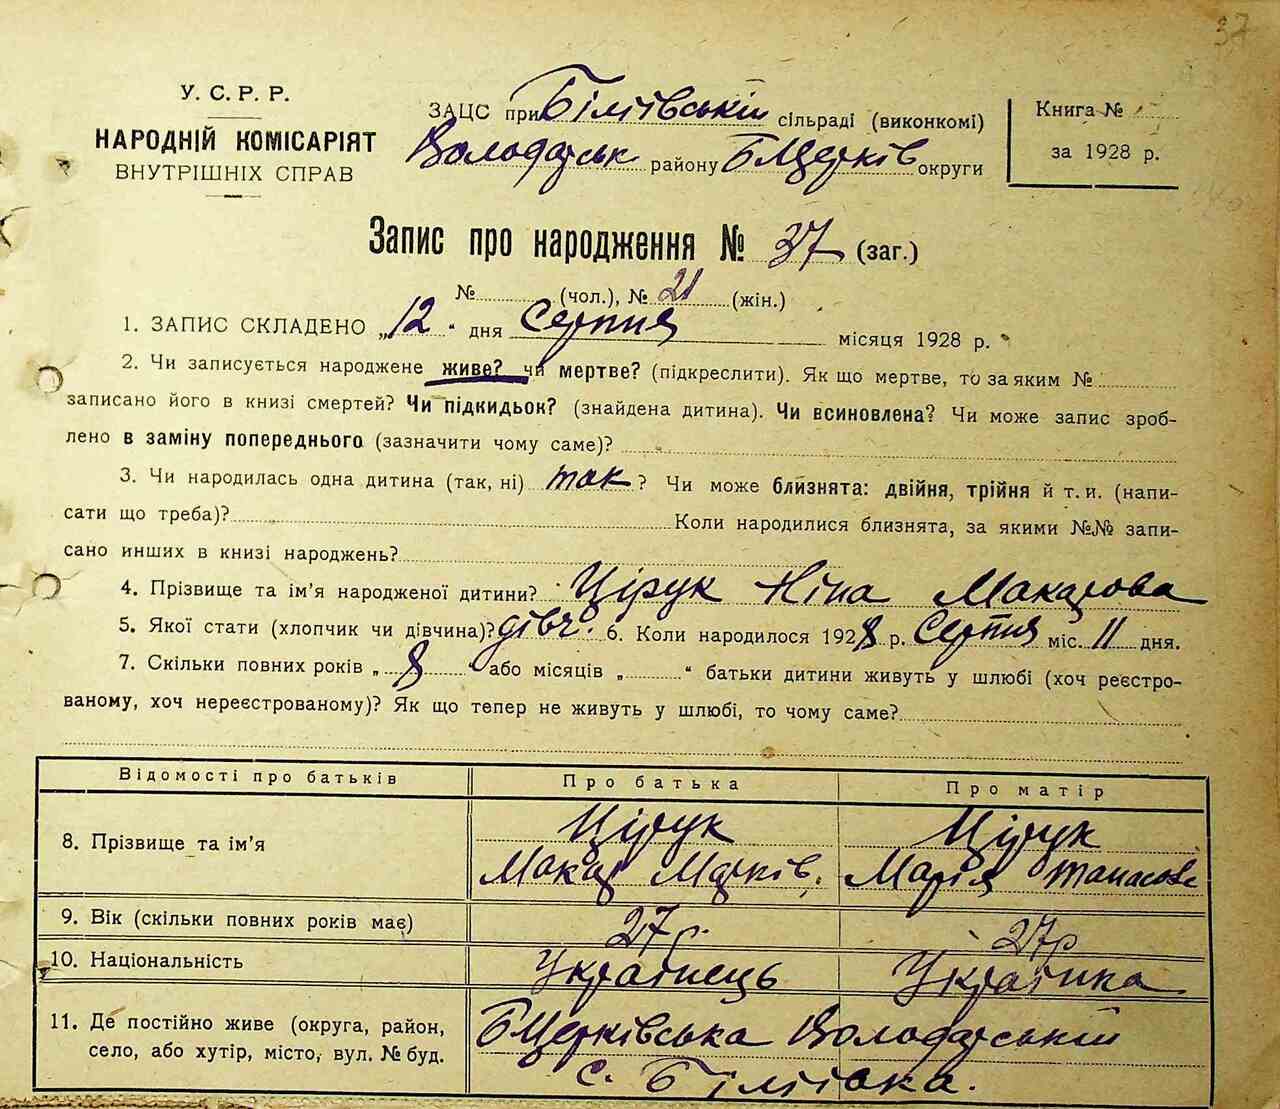 37
У. С. Р. Р.
НАРОДНІЙ КОМІСАРІЯТ
ВНУТРІШНІХ СПРАВ
ЗАЦС при Біліївській сільраді (виконкомі)
Володарськ району БЦерків округи
Книга №
за 1928 р.
Запис про народження № 37 (заг.)
№ (чол.), № 21 (жін.)
1. ЗАПИС СКЛАДЕНО „12“ дня Серпня місяця 1928 р.
2. Чи записується народжене живе? чи мертве? (підкреслити). Як що мертве, то за яким №
записано його в книзі смертей? Чи підкидьок? (знайдена дитина). Чи всиновлена? Чи може запис зроб-
лено в заміну попереднього (зазначити чому саме)?
3. Чи народилась одна дитина (так, ні) так? Чи може близнята: двійня, трійня й т. и. (напи-
сати що треба)? Коли народилися близнята, за якими №№ запи-
сано инших в книзі народжень?
4. Прізвище та ім'я народженої дитини? Цірук Ніна Макарова
5. Якої стати (хлопчик чи дівчина)? дівч. 6. Коли народилося 1928 р. Серпня міс. 11 дня.
7. Скільки повних років „8“ або місяців „ “ батьки дитини живуть у шлюбі (хоч реєстро-
ваному, хоч нереєстрованому)? Як що тепер не живуть у шлюбі, то чому саме?
Відомості про батьків Про батька Про матір
8. Прізвище та ім'я Цірук Цірук
Макар Марків. Марія Танасова
9. Вік (скільки повних років має) 27 р. 27 р
10. Національність Українець Українка
11. Де постійно живе (округа, район, БЦерківська Володарській
село, або хутір, місто, вул. № буд. с. Біліївка.